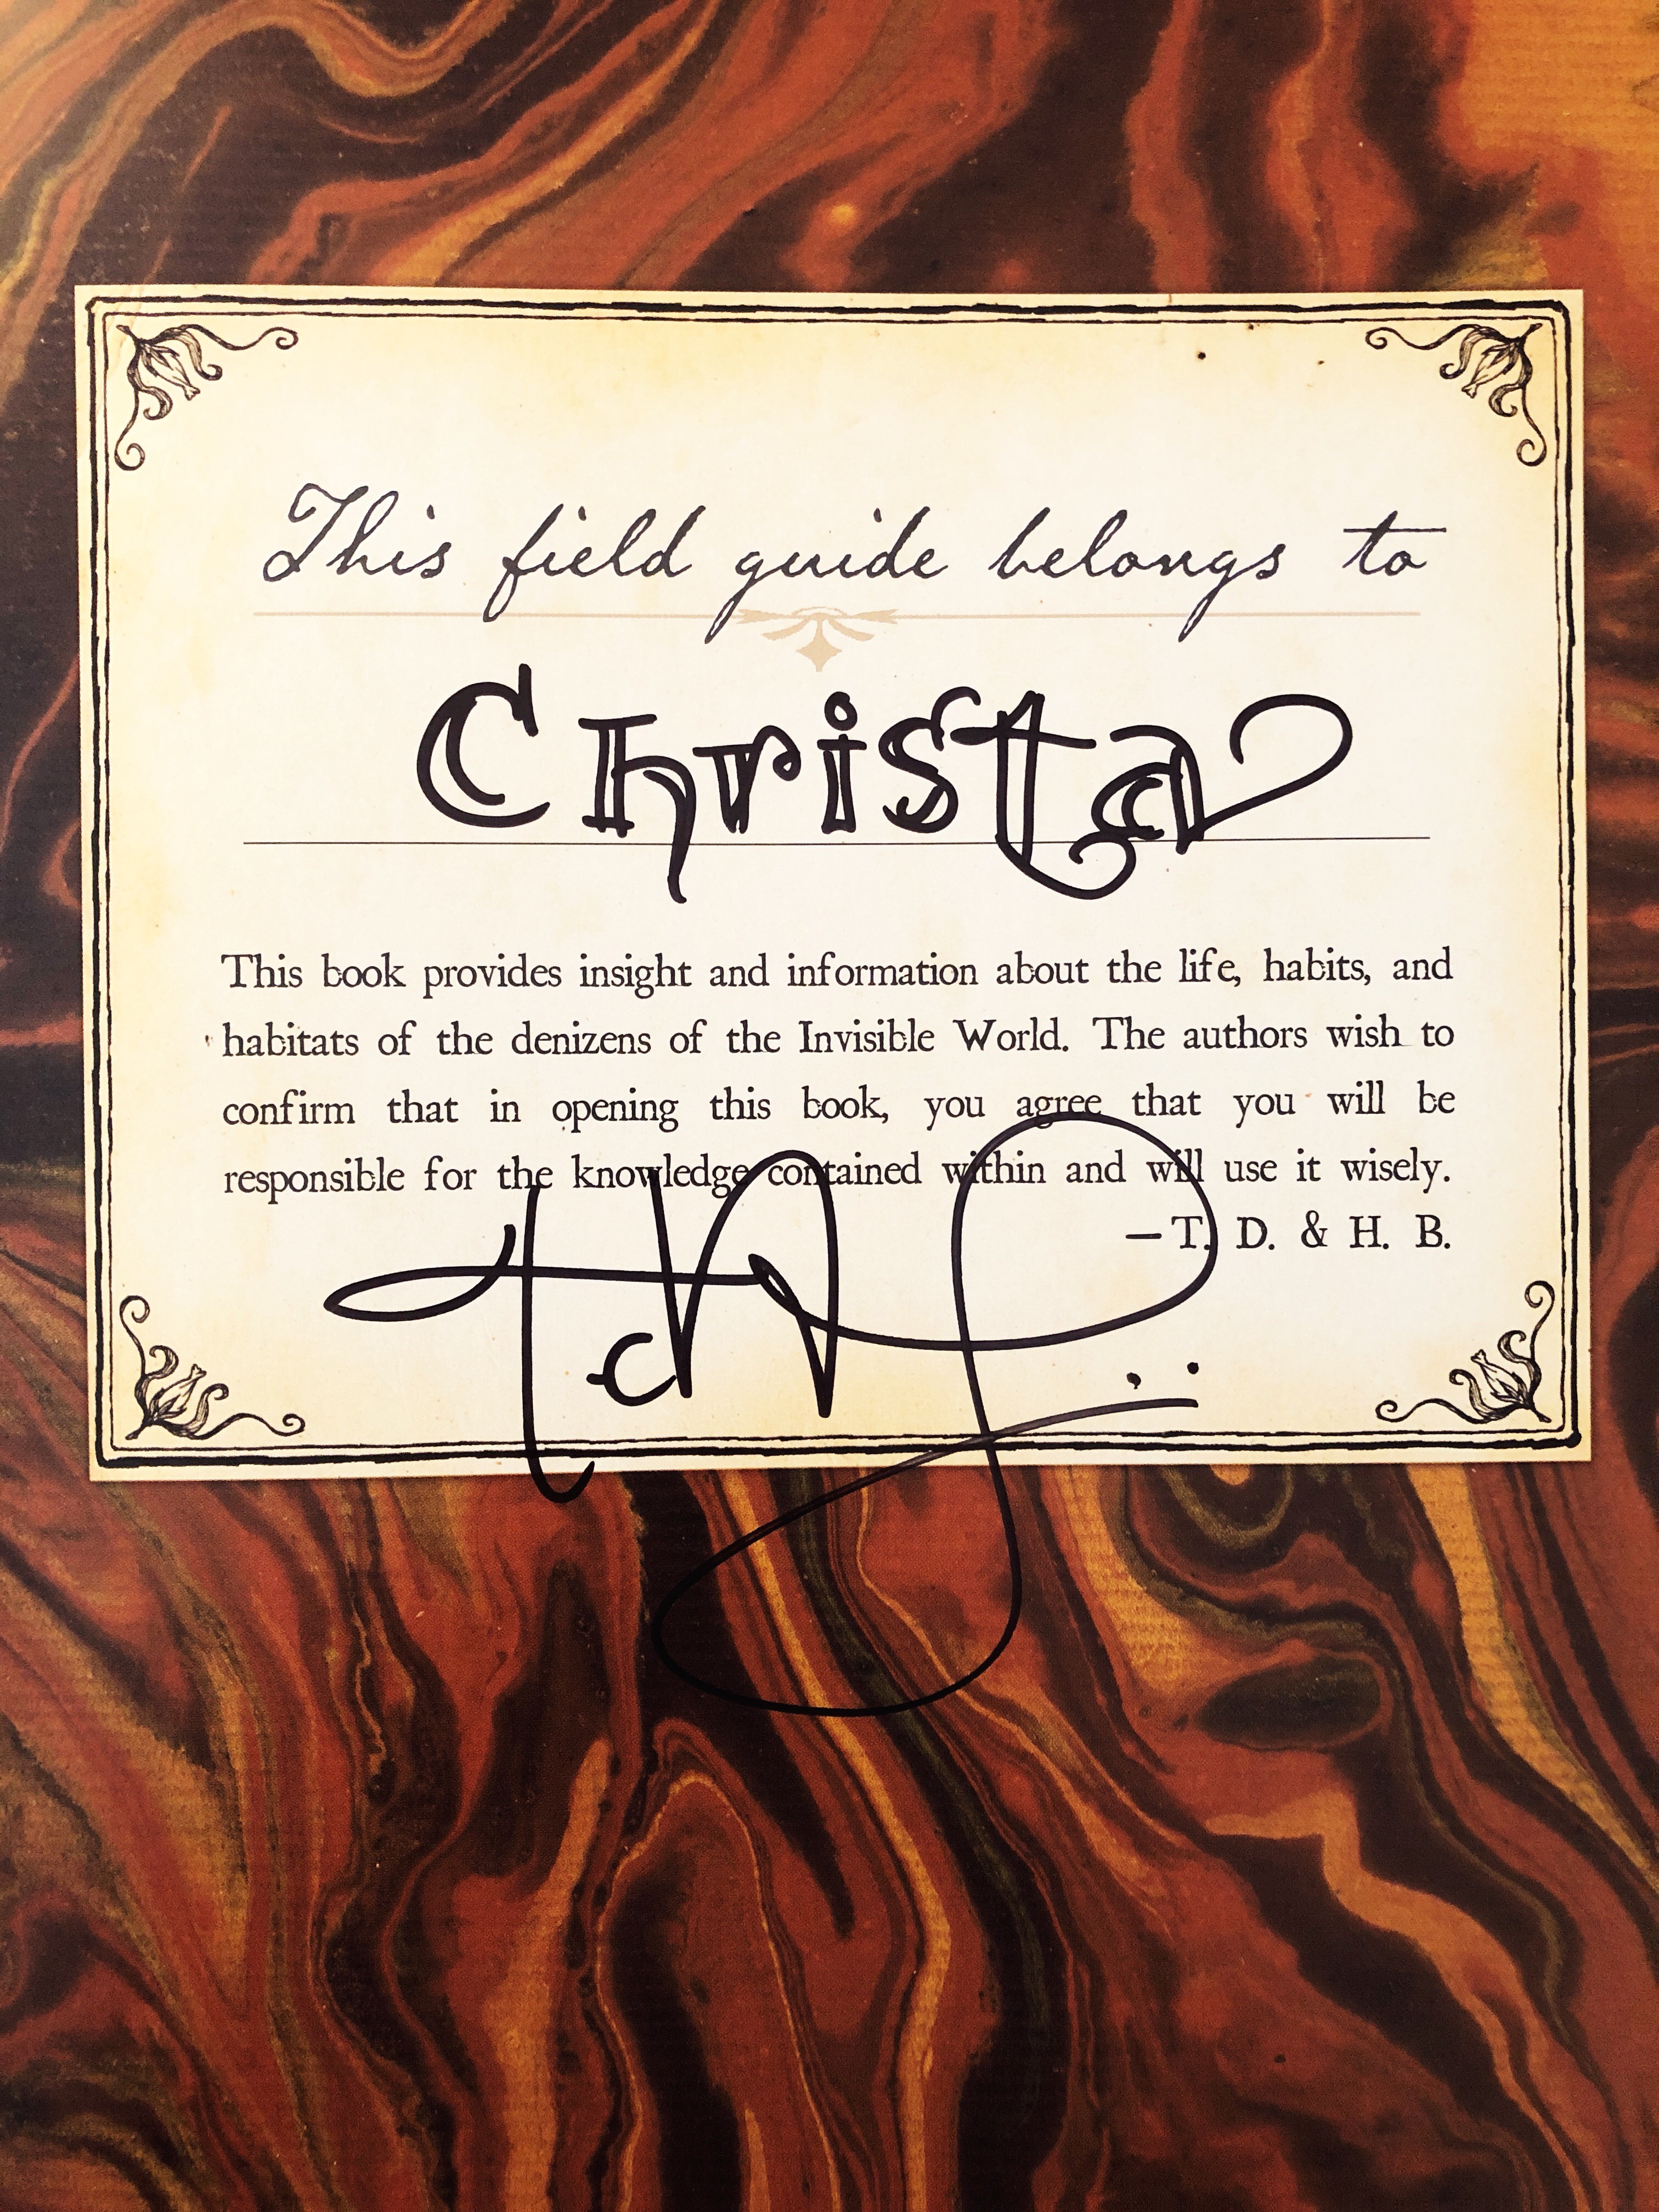 This field guide belongs to
Christa
This book provides insight and information about the life, habits, and
habitats of the denizens of the Invisible World. The authors wish to
confirm that in opening this book, you agree that you will be
responsible for the knowledge contained within and will use it wisely.
—T. D. & H. B.